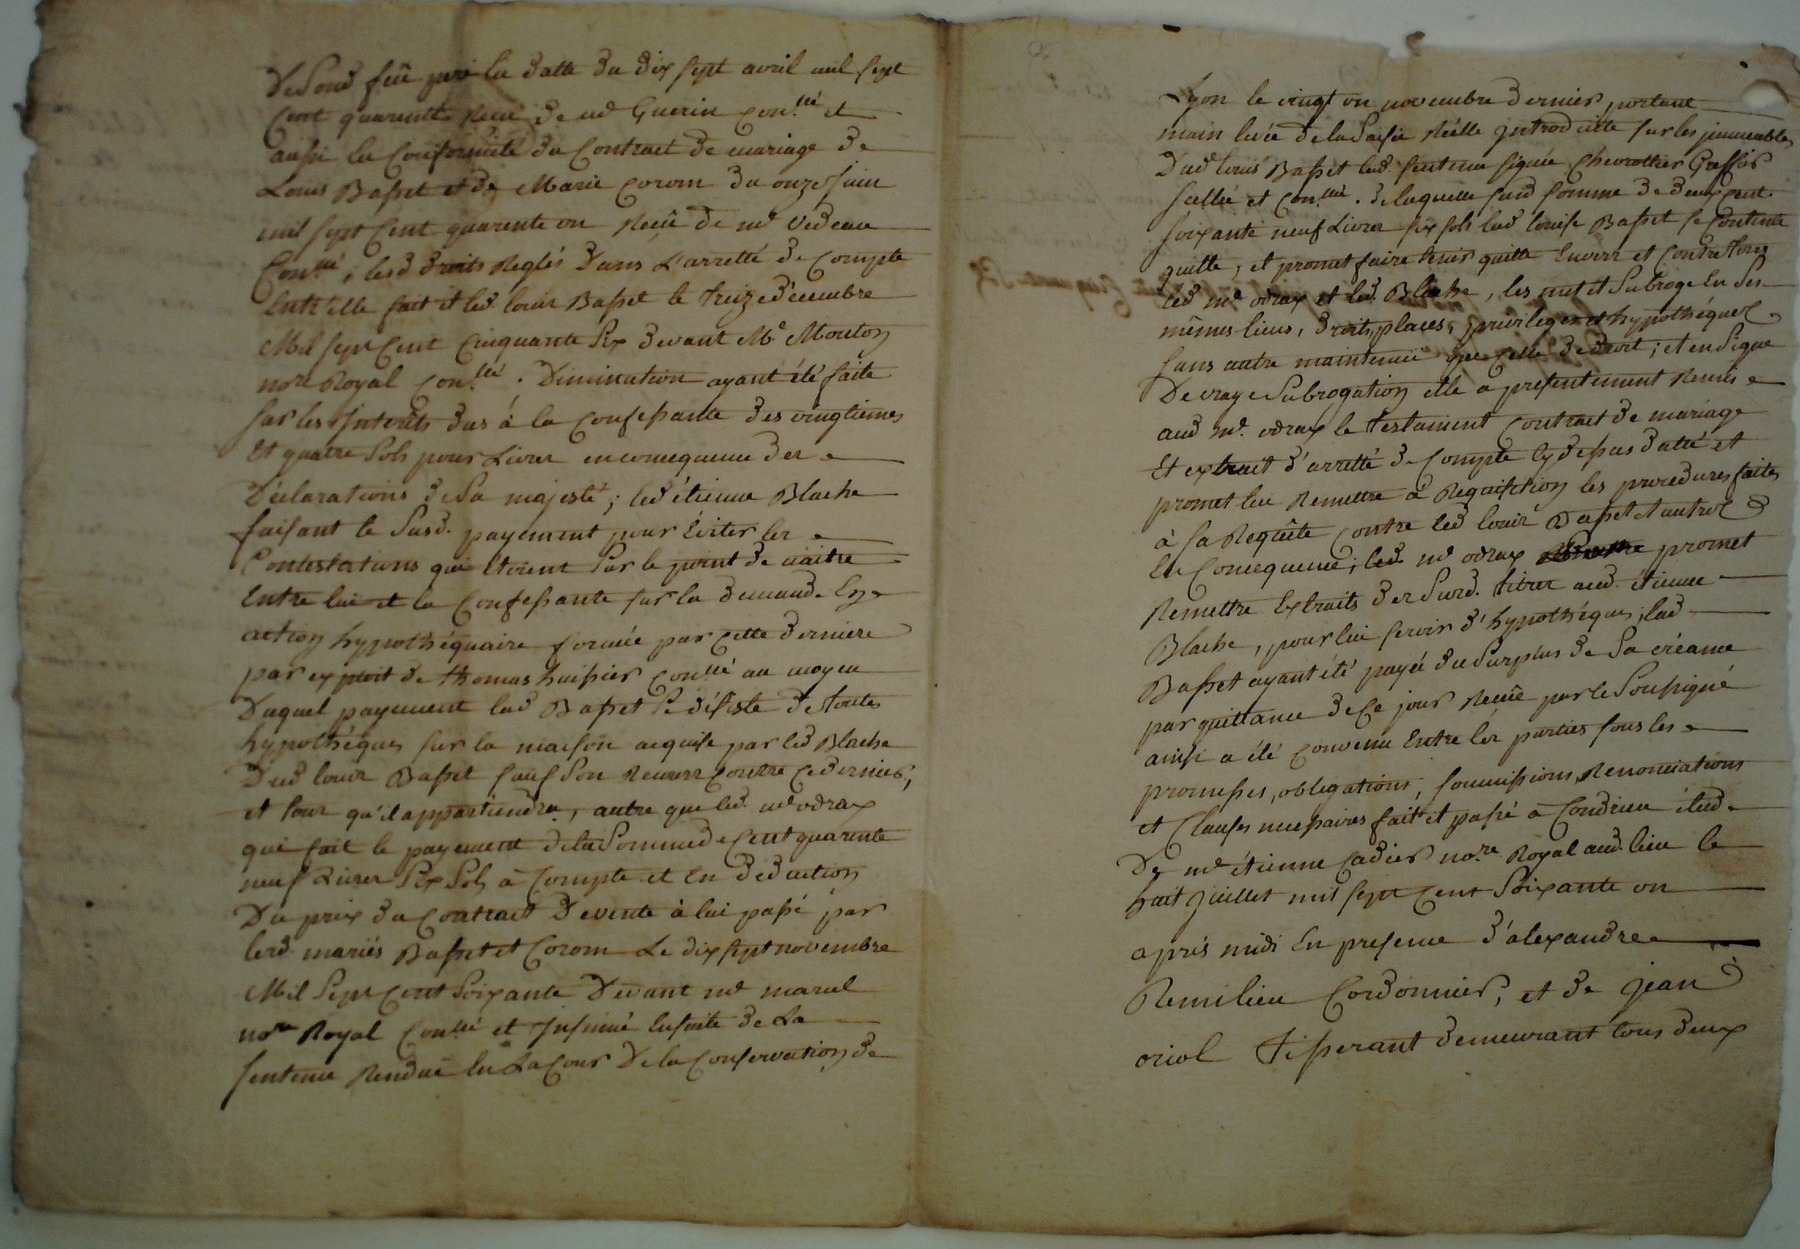 De Sond. feû pere la datte du dix sept avril mil sept
Cent quarente Recû de me Guerin con.lé et
aussi en Conformité du Contract de mariage de
Louis Basset et de Marie Corom du onze Juin
mil sept Cent quarente un Recû de me vedeau
Con.lé, lesd droits Reglés Dans L'arretté de Compte
Entr'elle fait et led louis Basset le treize décembre
Mil sept Cent Cinquante Six devant Me Mouton
no.re Royal con.lé. Diminution ayant été faite
sur les Interêts dus à la Confessante des vingtiemes
Et quatre Sols pour Livre en consequence des
Déclarations de Sa majesté; led étienne Blache
faisant le Susd. payement pour Eviter les
Contestations qui Etoient Sur le point de naitre
Entre lui et la Confessante sur la demande En
action hypothéquaire formée par cette derniere
par exploit de thomas huissier con.lé au moyen
Duquel payement lad Basset Se déSiste de toutes
hypothéques sur la maison acquise par led Blache
Dud louis Basset sauf Son Recours contre ce dernier,
et Pour qu'il appartiendra, autre que led. me odrax
qui fait le payement de la Somme de Cent quarente
neuf Livres Six Sols à Compte et En déduction
Du prix du Contract De vente à lui passé par
lesd mariés Basset et Corom Le dix sept novembre
Mil Sept Cent Soixante Devant me
no.re Royal Con.lé et Insinué Ensuite de La
sentence Rendue En La Cour De la Conservation de
Lyon le vingt un novembre dernier, portant
main levée de la Saisie Réelle Introduitte sur les immeubles
Dud louis Basset lad. sentence signée Chevrottier Greffier
scellée et con.lée. de laquelle susd somme de deux cent
soixante neuf Livres six sols lad louise Basset se Contente
quitte, et promet faire tenir quitte Envers et Contre tous
led me odrax et led. Blache, les met et Subroge En Ses
mêmes lieus, droits, places, privileges et hypothéques
sans autre maintenüe que celle de droit; et en Signe
De vraye Subrogation elle a presentement Remis
aud me. odrax le testament Contract de mariage
Et extrait d'arretté de Compte Cy dessus datté et
promet lui Remettre à Requisition les procedures faites
à Sa Requête contre led louis Basset et autres
En Consequence; led me odrax promet
Remettre Extraits des Susd. titres aud. étienne
Blache, pour lui servir d'hypothéque; lad
Basset ayant été payée du Surplus de Sa créance
par quittance de Ce jour Recûe par le Soussigné
ainsi a été Convenu Entre les parties sous les
promesses, obligations, soumissions, Renonciations
et Clauses necessaires fait et passé a Condrieu étude
De me étienne Cadier no.re Royal aud. lieu le
huit juillet mil sept Cent Soixante un
après midi En presence d'alexandre
Remilieu Cordonnier, et de jean
oriol tisserant demeurant tous deux